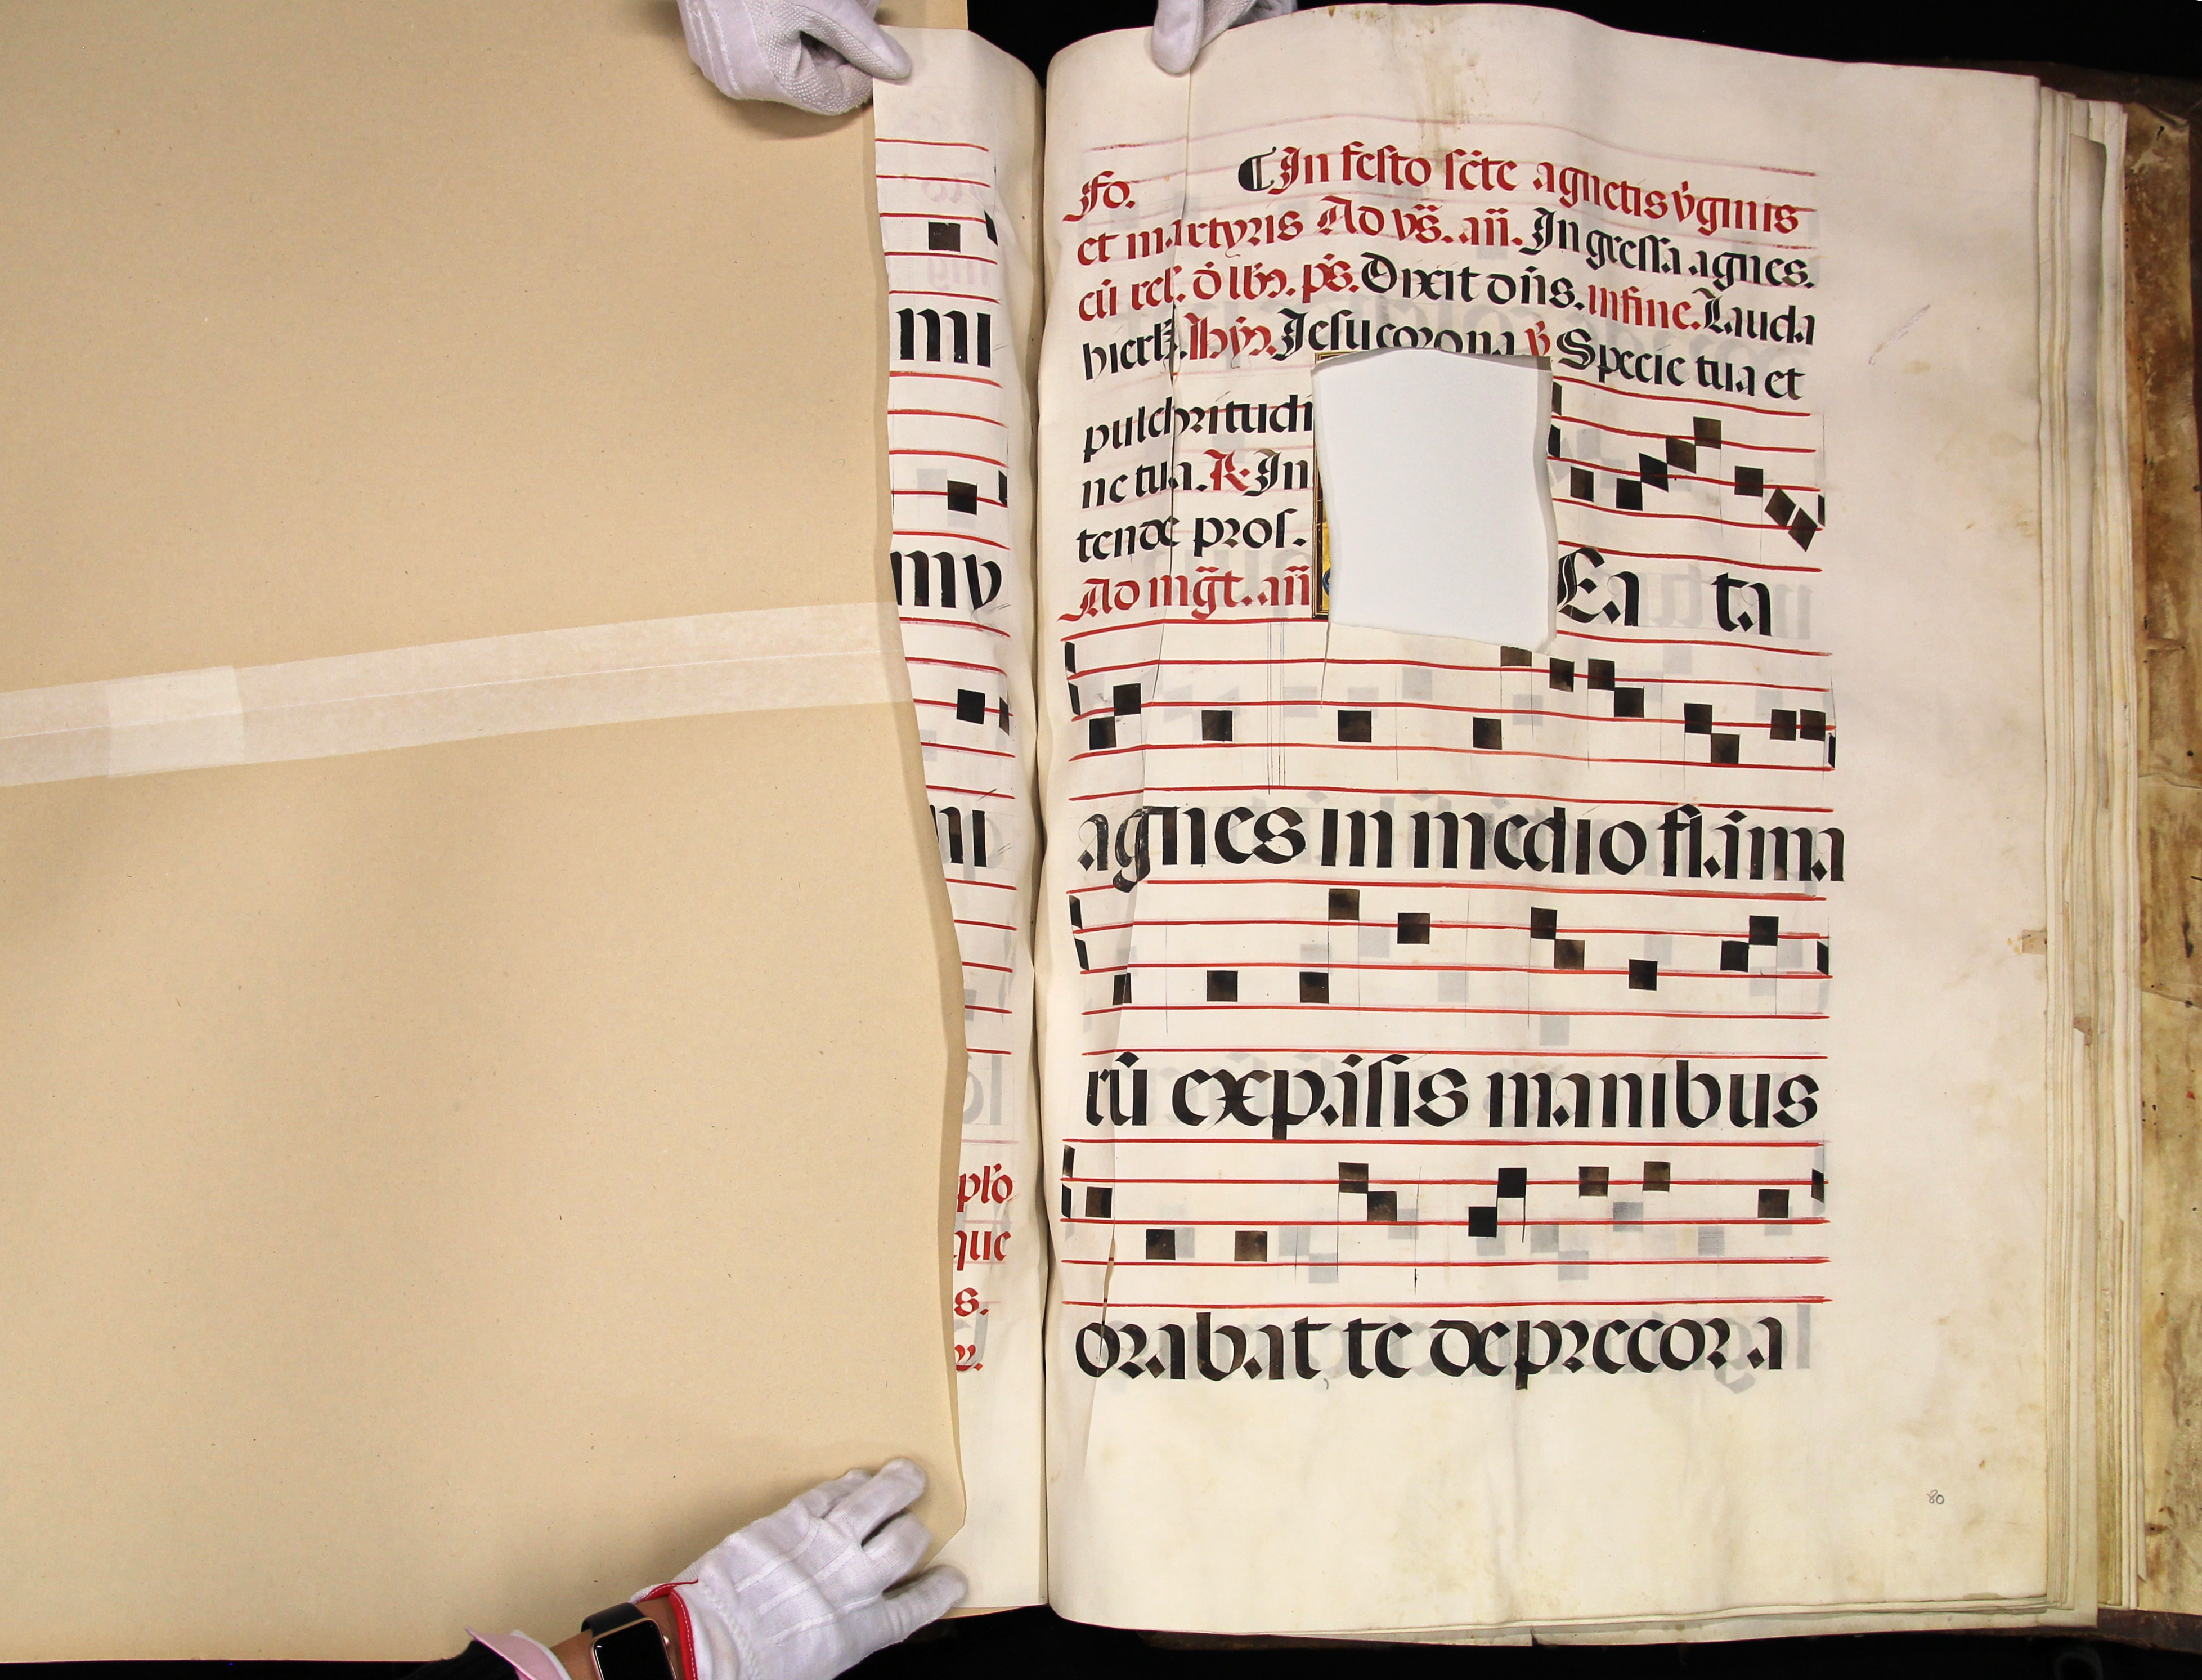 mi
mv
ni
plo
que
s.
Fo. ¶In festo scte agnetis v̇ginis
et martyris Ad vs̄. an̄. Ingressa agnes.
cū rel. ō lb². ps̄. Dixit dn̄s. in fine. Lauda
hierl̄. hy². Jesu corona v̇ Specie tua et
pulchritudi
ne tua. R. In
tende pros.
Ad mḡt. an̄
Ea ta
agnes in medio flāma
rū expāsis manibus
orabat te deprecora
80